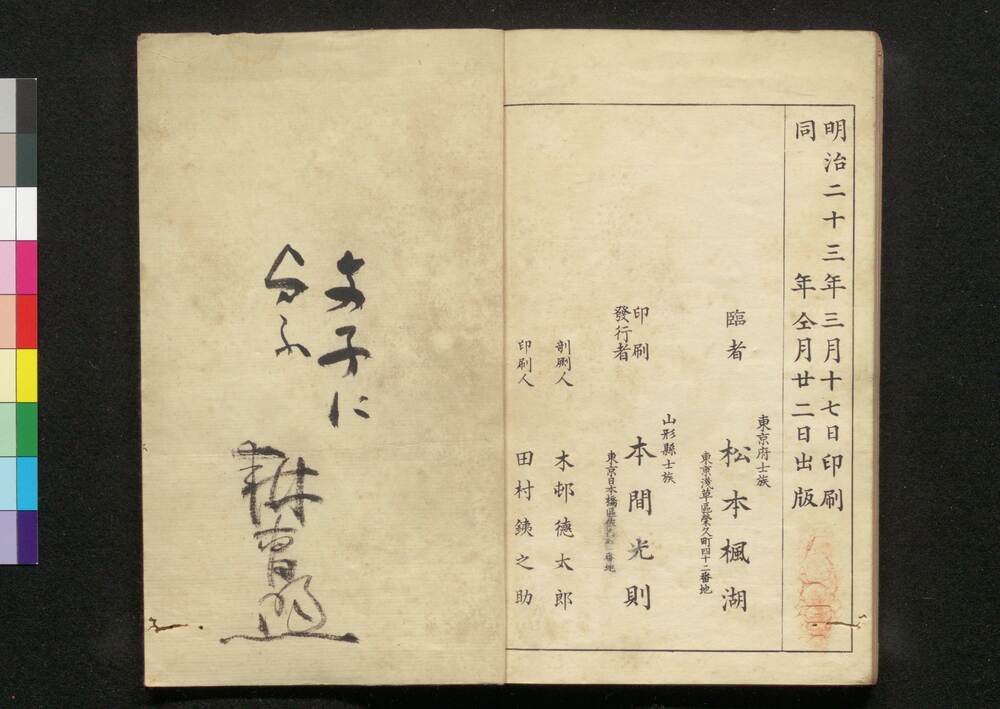 明治二十三年三月十七日印刷
同年仝月廿二日出版
臨者
東京府士族
松本楓湖
東京浅草區榮久町四十二番地
印刷
發行者
山形縣士族
本間光則
東京日本橋區 番地
剞劂人
木邨徳太郎
印刷人
田村鋏之助
文子に